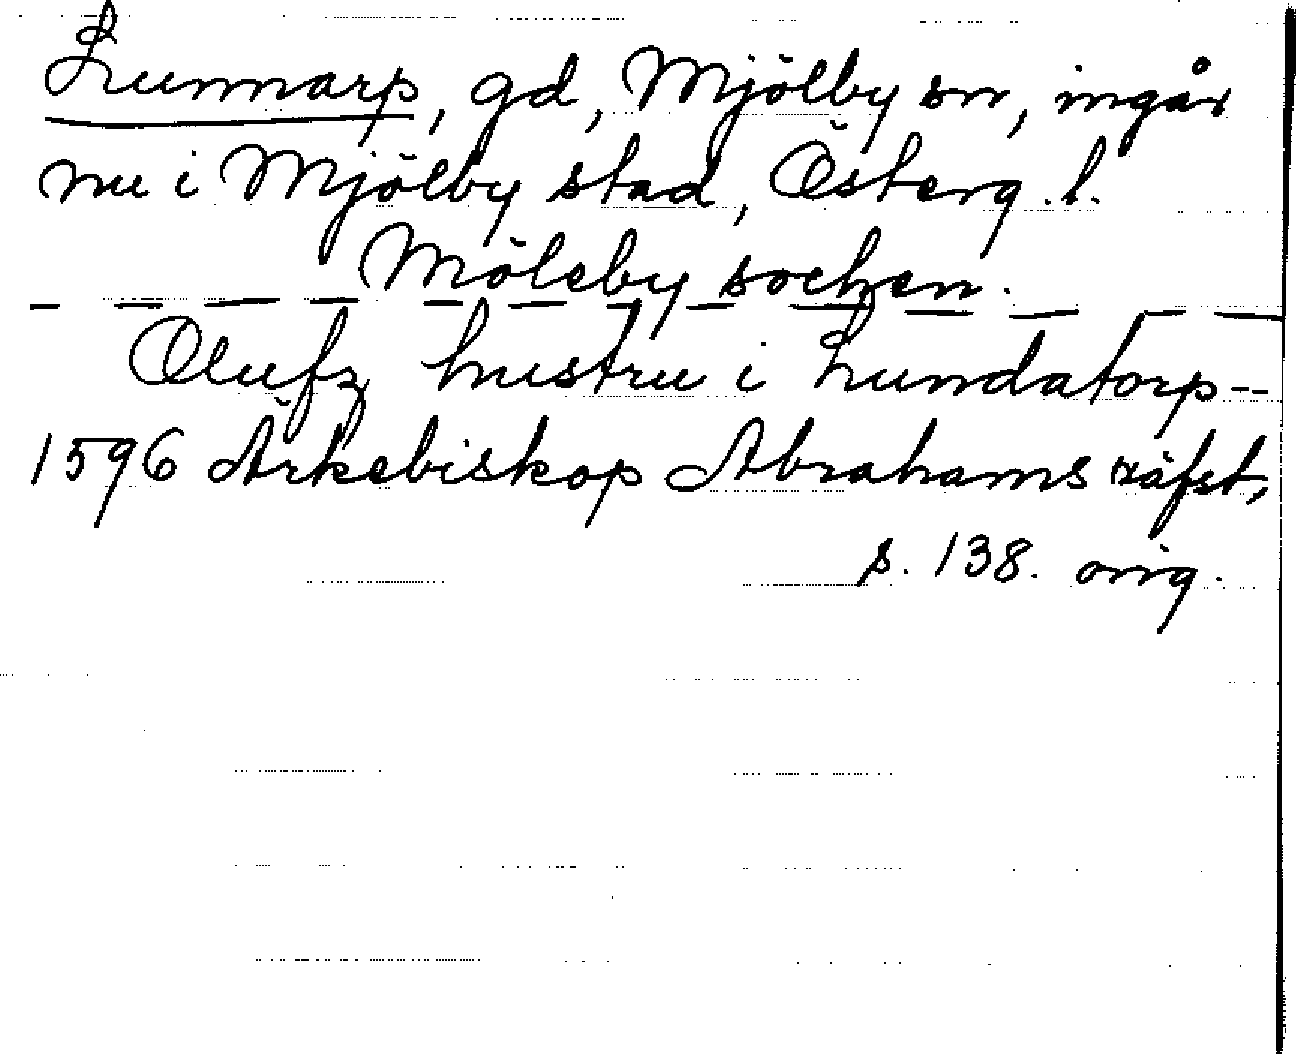 Lunnarp, gd, Mjölby sn, ingår
nu i Mjölby stad, Österg. l.
Möleby sochen.
Olufz hustru i Lundatorp--
1596 Ärkebiskop Abrahams räfst,
s. 138. orig.